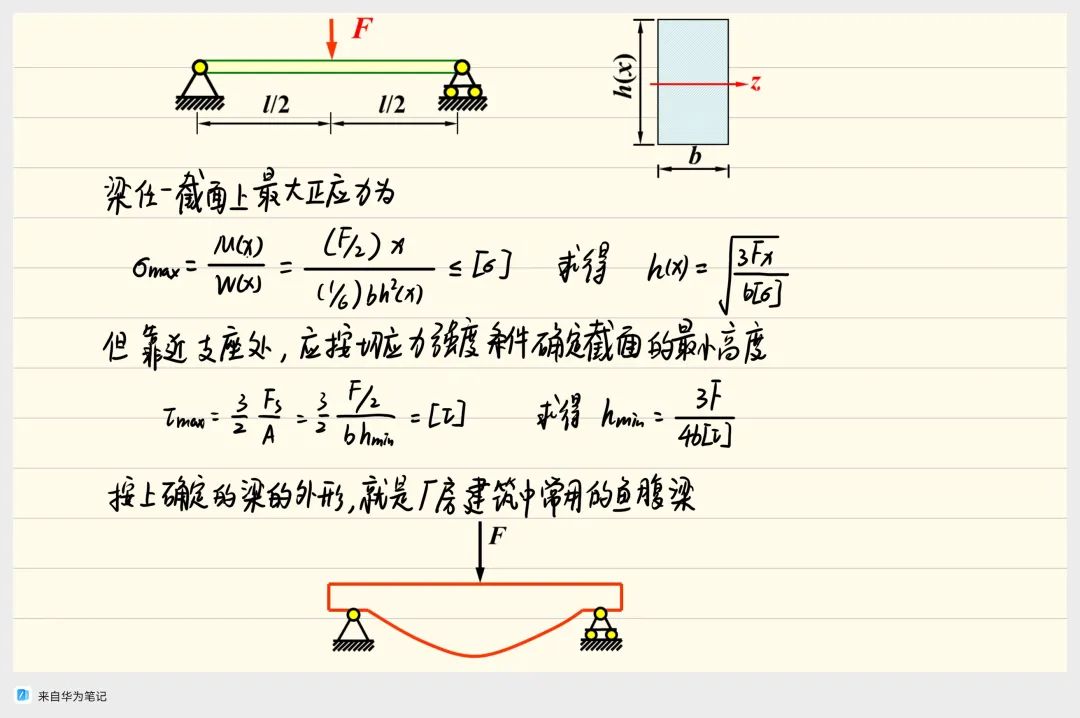 F
l/2 l/2
h(x)
z
b
梁任一截面上最大正应力为
σmax = M(x)/W(x) = (F/2)x/(1/6)bh²(x) ≤ [σ] 求得 h(x) = √(3Fx/b[σ])
但靠近支座处，应按切应力强度条件确定截面的最小高度
τmax = 3/2 Fs/A = 3/2 F/2/bhmin = [τ] 求得 hmin = 3F/4b[τ]
按上确定的梁的外形，就是厂房建筑中常用的鱼腹梁
F
来自华为笔记